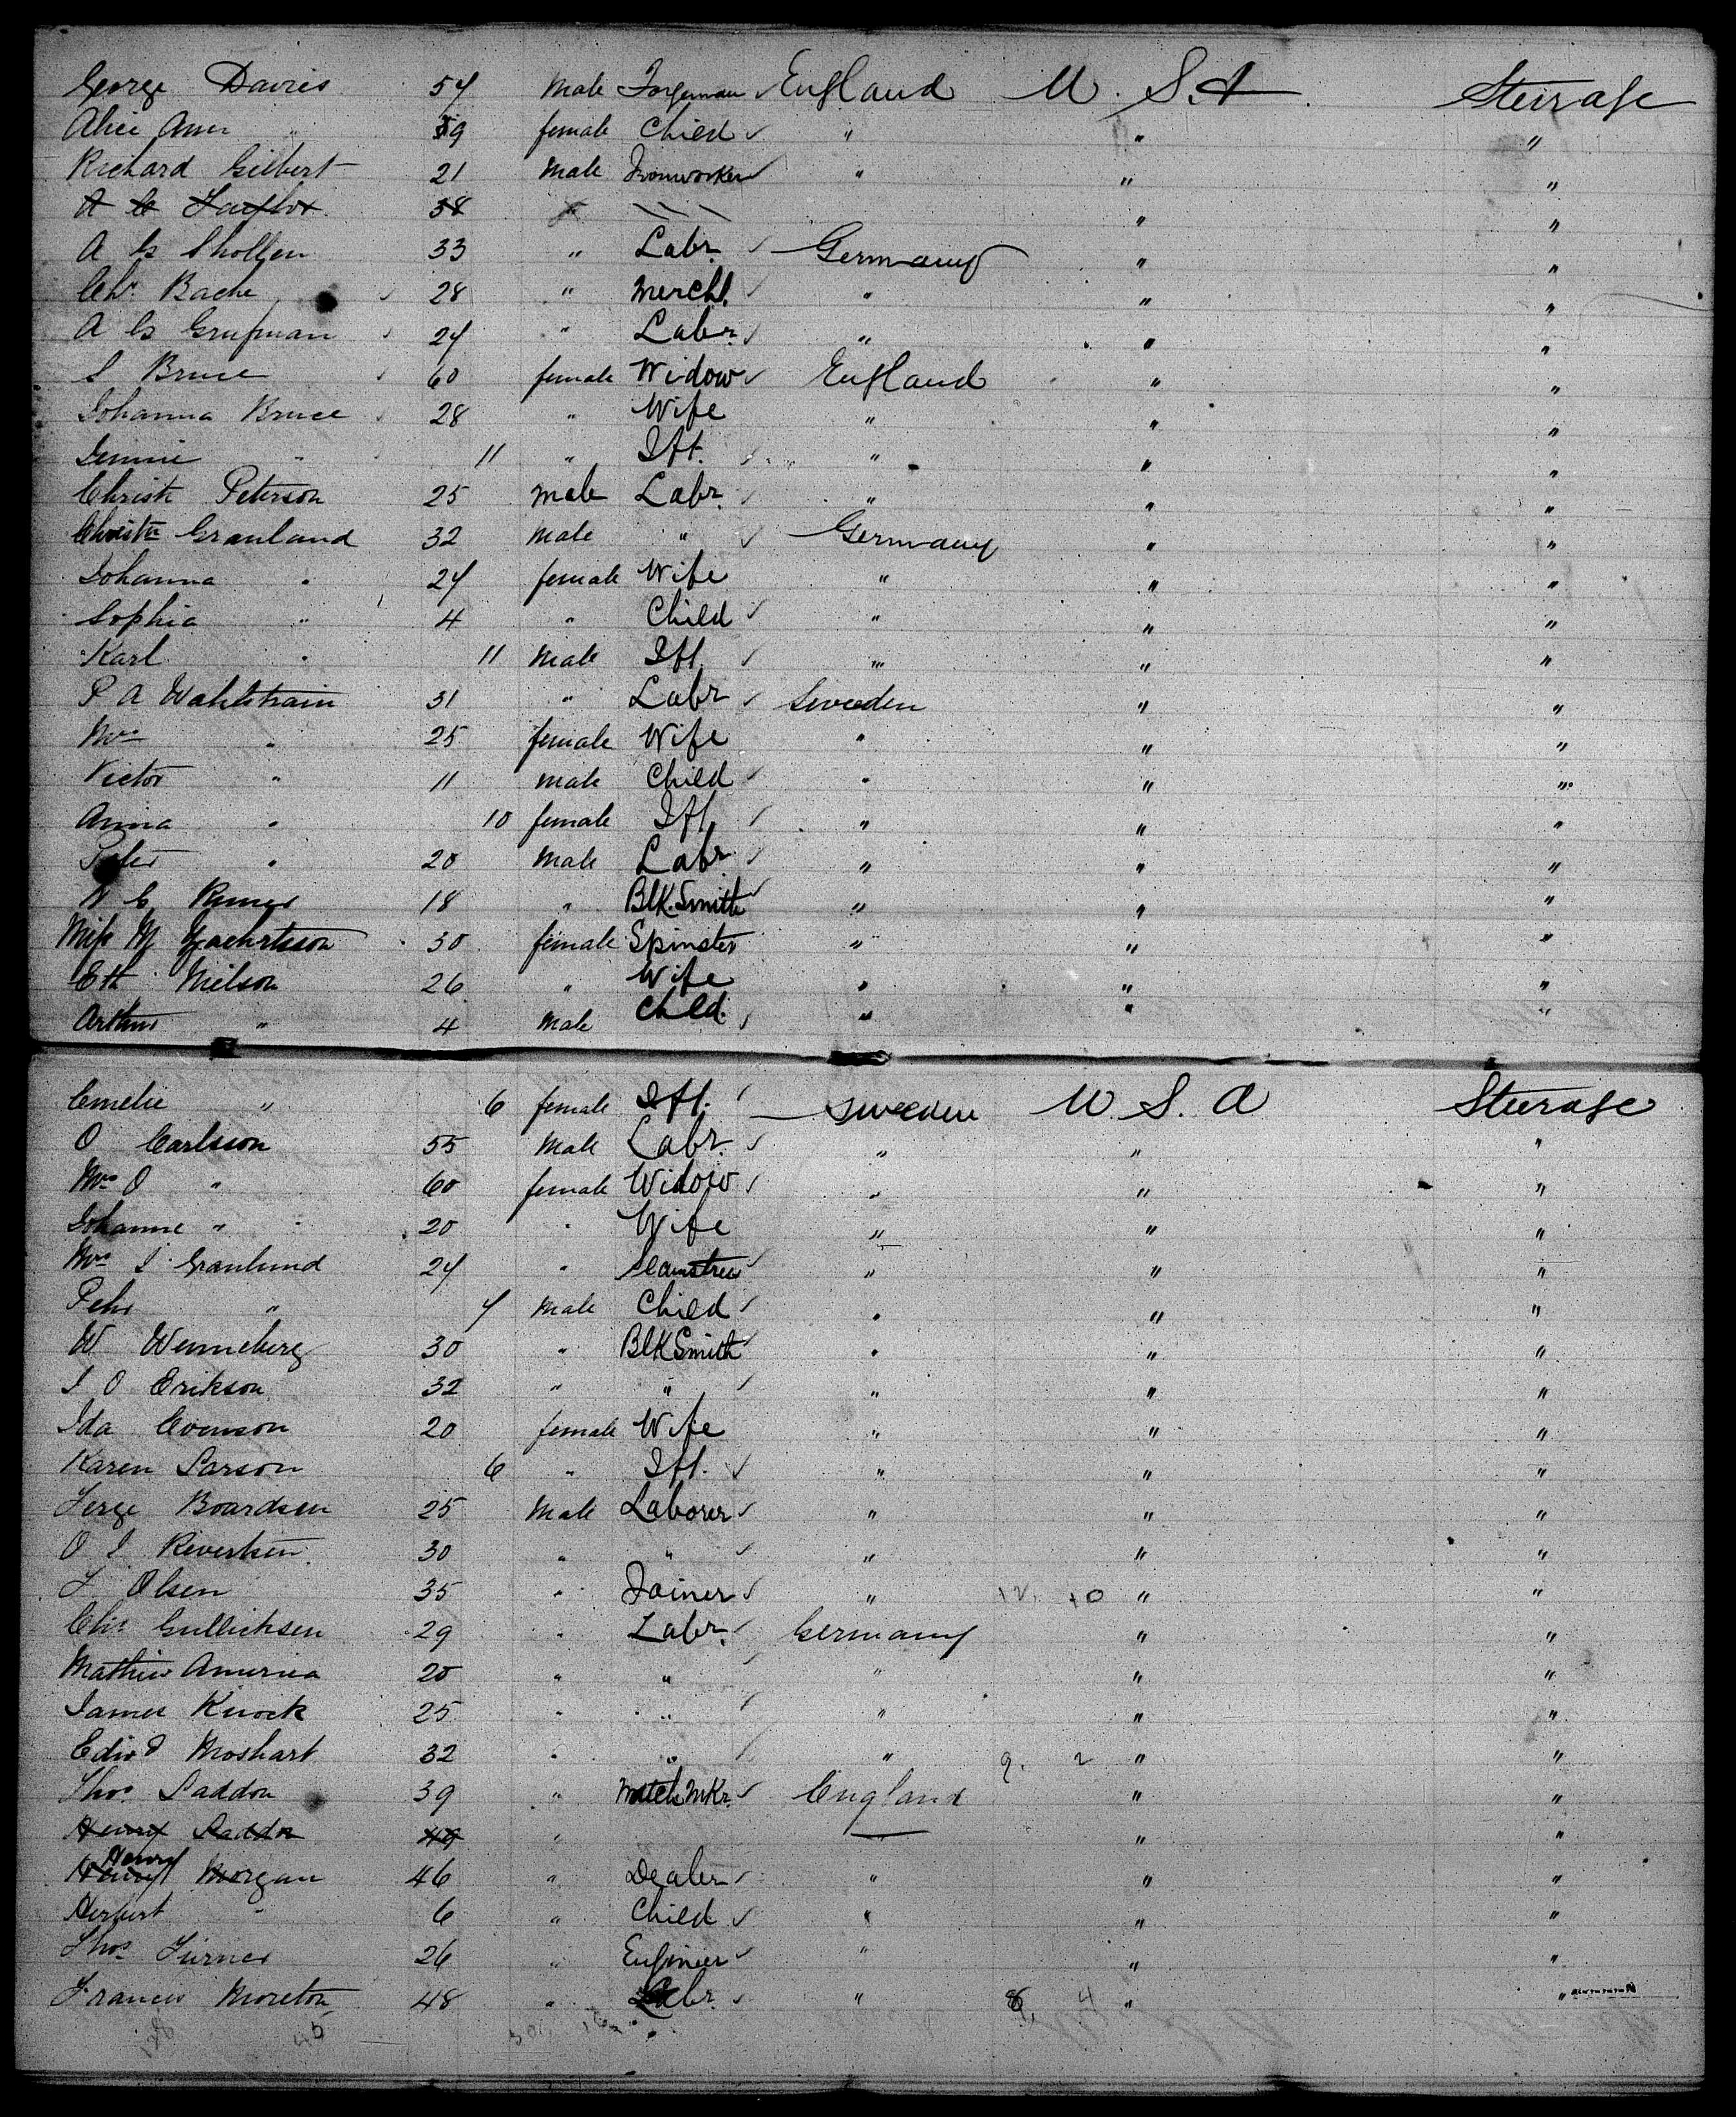 George Davies 54 Male Forgeman England U. S. A Steerage
Alice Ann " 9 female Child " " "
Richard Gilbert 21 Male Ironworker " " "
A C Taylor 38 " "
A G 33 " Labr. Germany " "
Chr. Bache 28 " Mercht. " " "
A G Grufman 24 " Labr. " " "
S Bruce 60 female Widow England " "
Johanna Bruce 28 " Wife " " "
Jennie " 11 " Ift. " " "
Christn Peterson 25 male Labr. " " "
Christn Granland 32 Male " Germany " "
Johanna " 24 female Wife " " "
Sophia " 4 " Child " " "
Karl " 11 Male Ift. " " "
P A 31 " Labr Sweden " "
Mrs " 25 female Wife " " "
Victor " 11 male Child " " "
Anna " 10 female Ift. " " "
Peter " 20 Male Labr. " " "
C 18 " Blk. Smith " " "
Miss M 30 female Spinster " " "
Eth Nielson 26 " Wife " " "
Arthur " 4 Male Child. " " "
Emelie " 6 female Ift. Sweden U. S. A Steerage
O Carlsson 55 Male Labr. " " "
Mrs O " 60 female Widow " " "
Johanne " 20 " Wife " " "
Mrs J Granlund 24 " Seamstress " " "
Pehr " 4 Male Child " " "
W Wenneberg 30 " Blk Smith " " "
J O Erikson 32 " " " " "
Ida Evenson 20 female Wife " " "
Karen Larson 6 " Ift. " " "
Terge Boardsen 25 Male Laborer " " "
O J 30 " " " " "
L Olsen 35 " Joiner " " "
Chr. Gullichsen 29 " Labr. Germany " "
Mathew America 20 " " " " "
James Knock 25 " " " " "
Edwd Moshart 32 " " " 9. 2 " "
Thos. Laddon 39 " Match Mkr. England " "
Henry Laddon 49 " " "
Henry Morgan 46 " Dealer " " "
Herbert " 6 " Child " " "
Thos Turner 26 " Engineer " " "
Francis Moreton 48 " Labr. " 4 " "